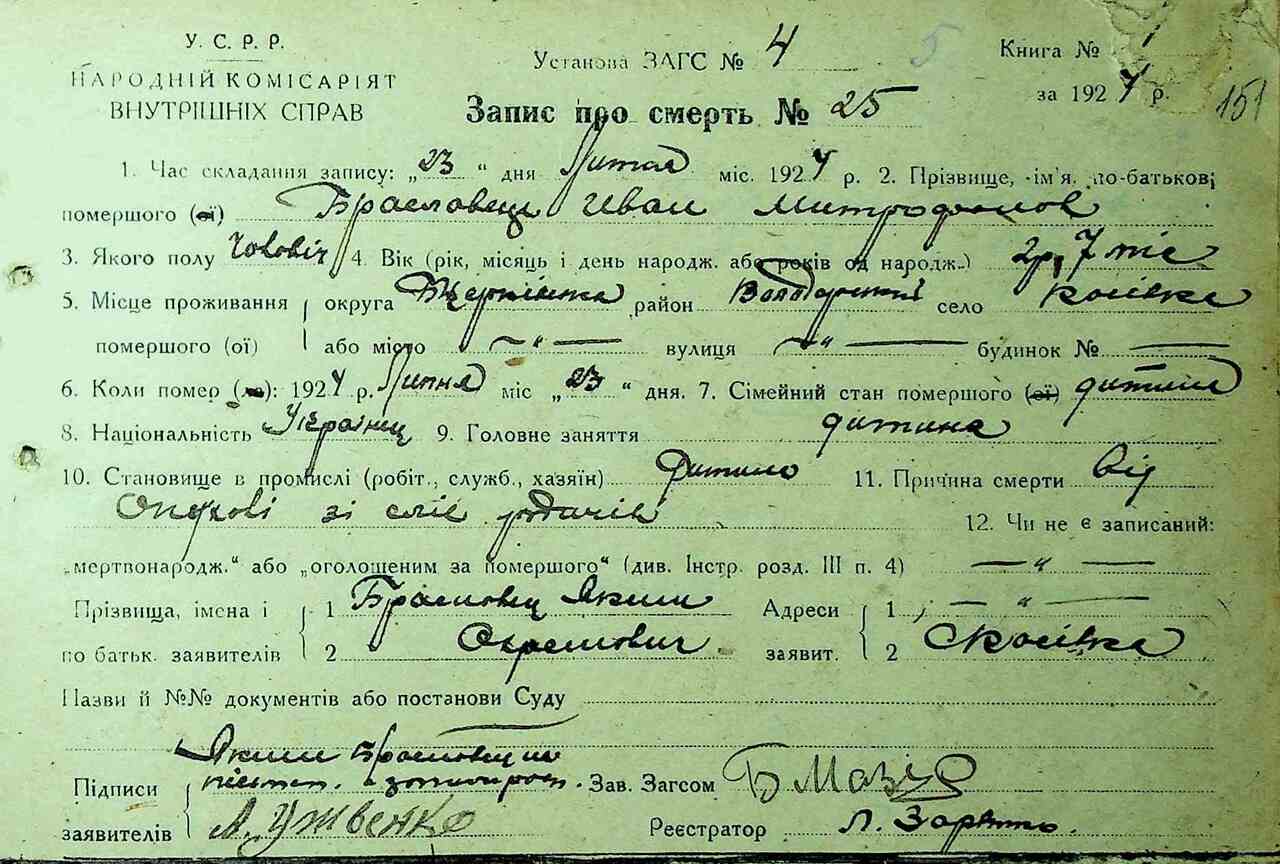 У. С. Р. Р.
НАРОДНІЙ КОМІСАРІЯТ
ВНУТРІШНІХ СПРАВ
Установа ЗАГС № 4
5
Книга № 1
за 1924 р.
151
Запис про смерть № 25
1. Час складання запису: „23“ дня міс. 1924 р. 2. Прізвище, ім'я, по-батькові
помершого (ої) Браславець Иван Митрофанов
3. Якого полу 4. Вік (рік, місяць і день народж. або років од народж.) 2 р, 7 міс
5. Місце проживання округа район Володарський село Косівка
помершого (ої) або місто —„— вулиця —„— будинок № —
6. Коли помер (ла): 1924 р. Липня міс „23“ дня. 7. Сімейний стан помершого (ої) дитина
8. Національність Українец 9. Головне заняття дитина
10. Становище в промислі (робіт., служб., хазяїн) Дитина 11. Причина смерти Від
12. Чи не є записаний:
„мертвонародж.“ або „оголошеним за помершого“ (див. Інстр. розд. III п. 4) —„—
Прізвища, імена і 1 Браславец Яким Адреси 1 —„—
по батьк. заявителів 2 заявит. 2 С Косівка
Назви й №№ документів або постанови Суду
Яким Браславец
Підписи Зав. Загсом
заявителів Реєстратор Л.